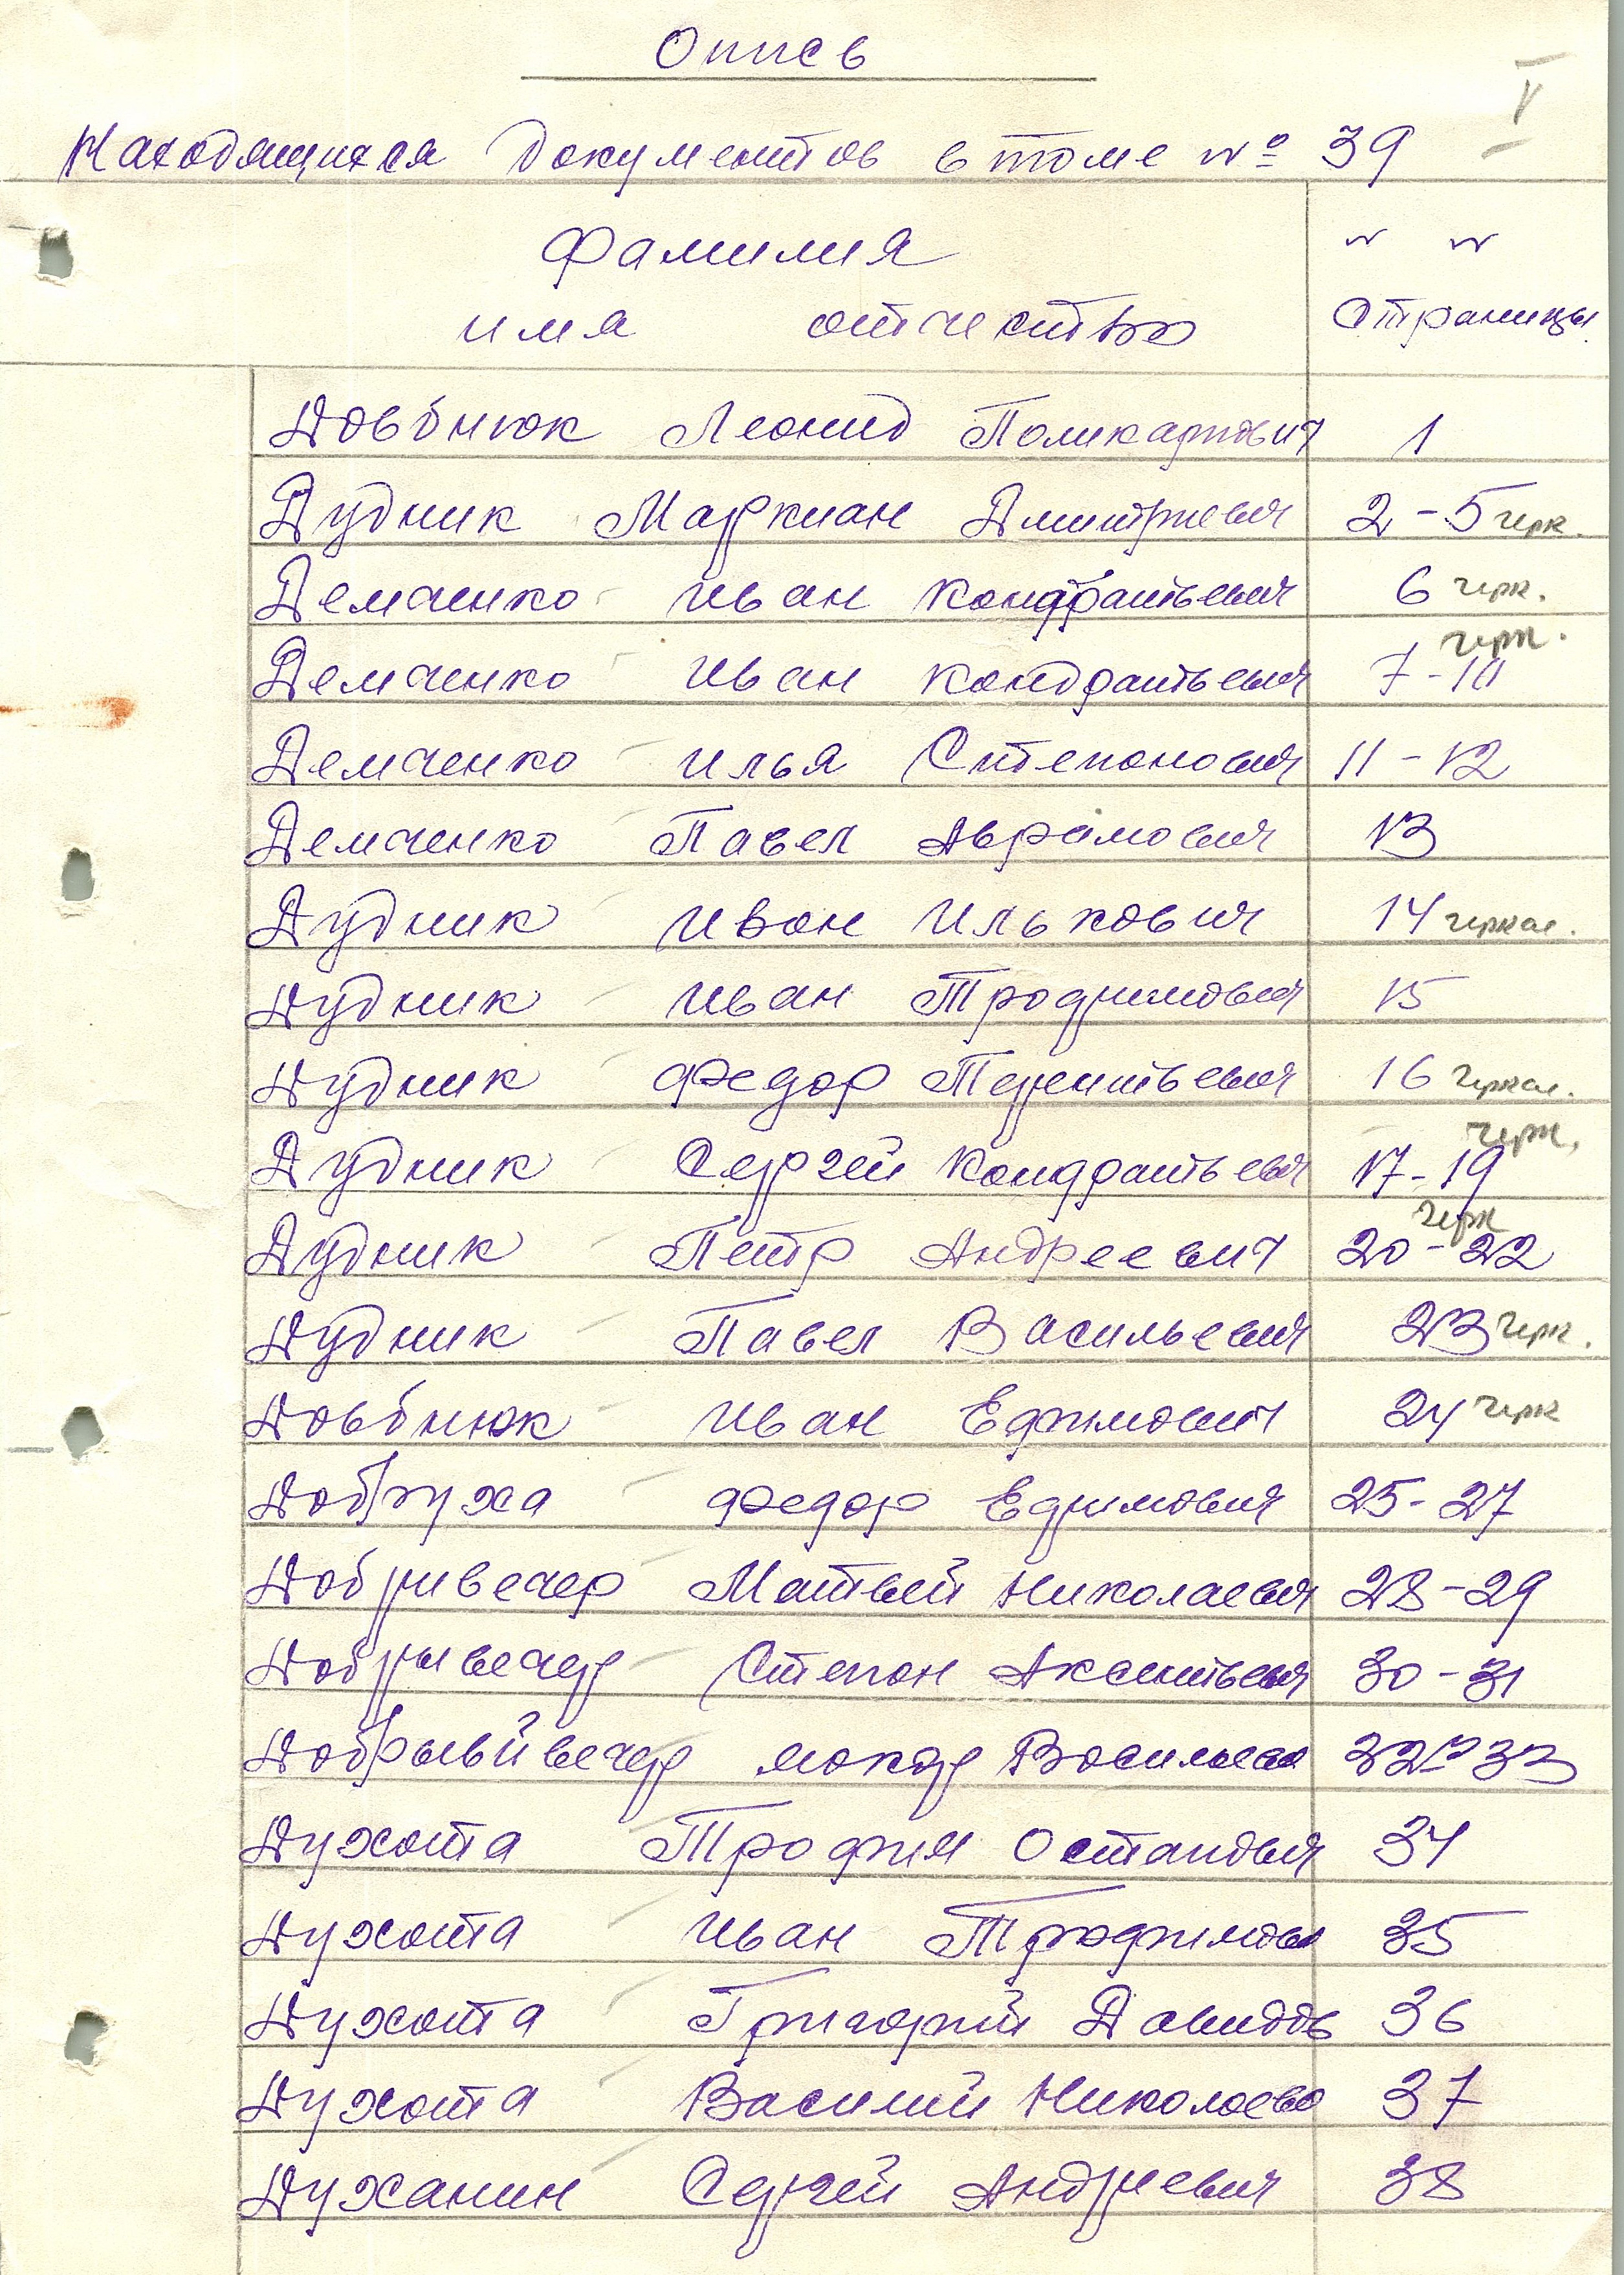 Опись
Находящихся документов в томе № 39
Фамилия
имя отчество
" "
Страницы
Довбнюк Леонид Поликарпович 1
Дудник Маркиан Дмитриевич 2-5 черк.
Демченко Иван Кондратьевич 6 черк.
Демченко Иван Кондратьевич 7-10 черк.
Демченко Илья Степонович 11-12
Демченко Павел Аврамович 13
Дудник Ивон Илькович 14 черкас.
Дудник Иван Трофимович 15
Дудник Федор Терентьевич 16 черкас.
Дудник Сергей Кондратьевич 17-19 черк.
Дудник Петр Андреевич 20-22 черк
Дудник Павел Васильевич 23 черк.
Довбнюк Иван Ефимович 24 черк
Добруха Федор Ефимович 25-27
Добривечер Матвей Николаевич 28-29
Добрывечер Степон Аксентьевич 30-31
Макар 32-33
Духота Трофим 34
Духота Иван 35
Духота Григорий 36
Духота Василий 37
Духанин Сергей Андреевич 38